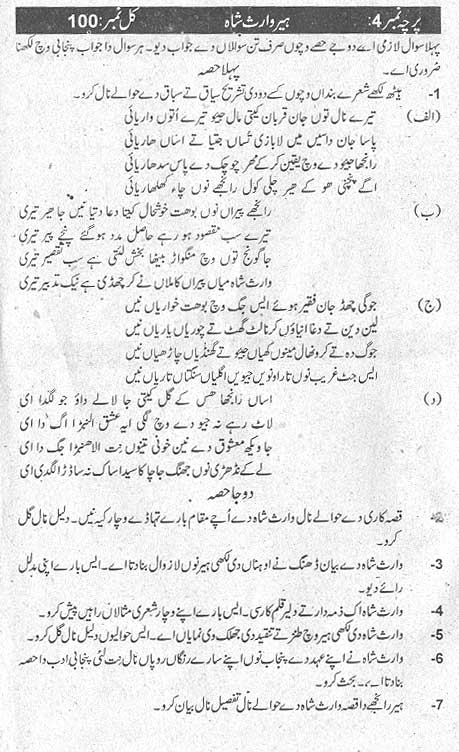 پرچہ نمبر 4: ہیر وارث شاہ کل نمبر: 100
پہلا سوال لازمی اے دوجے حصے وچوں صرف تن سوالاں دے جواب دیو۔ ہر سوال دا جواب پنجابی وچ لکھنا
ضروری اے۔
پہلا حصہ
1- ہیٹھ لکھے شعرے بنداں وچوں کسے دو دی تشریح سیاق تے سباق دے حوالے نال کرو۔
(الف) تیرے نال توں جان قربان کیتی مال جیو تیرے اُتوں واریائی
پاسا جان دا سیس میں لا بازی تُساں جتیا تے اساں ھاریائی
رانجھا جیو دے وچ یقین کر کے مُھر چوچک دے پاس سدھاریائی
اگے پنچنی ھو کے ھیر چلی کول رانجھے نوں چاء کھلھاریائی
(ب) رانجھے پیراں نوں بوھت خوشحال کیتا دعا دتیا نیں جا ھیر تیری
تیرے سب مقصود ہو رہے حاصل مدد ہو گئے پنجے پیر تیری
جا گونج توں وچ منگواڑ بیٹھا بخش لئی ہے سب تقصیر تیری
وارث شاہ میاں پیراں کاملاں نے کر چھڈی ہے نیک تدبیر تیری
(ج) جوگی چھڈ جان فقیر ہوئے ایس جگ وچ بوھت خواریاں نیں
لین دین تے دغا انیاؤں کرنا لٹ گھٹ تے چوریاں یاریاں نیں
جوگ دہ تے کرو نھال مینوں کھیاں جیو تے گھنڈیاں چاڑھیاں نیں
ایس جٹ غریب نوں تار اونویں جیویں اگلیاں سنگتاں تاریاں نیں
(د) اساں رانجھا ھس کے گل کیتی جا لا لے داؤ جو لگدا ای
لاٹ رہے نہ جیو دے وچ لگی ایہ عشق النبڑا اگ دا ای
جا ویکھ معشوق دے نین خونی تینوں نِت الاھنبڑا جگ دا ای
لے کے نڈھڑی نوں جھنگ جا چاکا سیدا ساک نہ ساڈڑا لگدی ای
دوجا حصہ
قصہ کاری دے حوالے نال وارث شاہ دے اُچے مقام بارے تہاڈے وچار کیہ نیں۔ دلیل نال گل
کرو۔
3- وارث شاہ دے بیان ڈھنگ نے اوہناں دی لکھی ہیر نوں لازوال بنا دتا اے۔ ایس بارے اپنی مدلل
رائے دیو۔
4- وارث شاہ اک ذمہ دار تے دلیر قلم کار سی۔ ایس بارے اپنے وچار شعری مثالاں راہیں پیش کرو۔
5- وارث شاہ دی لکھی ہیر وچ طنز تے تنقید دی جھلک وی نمایاں اے۔ ایس حوالیوں دلیل نال گل کرو۔
6- وارث شاہ نے اپنے عہد دے پنجاب نوں اپنے سارے رنگاں روپاں نال نِت لئی پنجابی ادب دا حصہ
بنا دتا اے۔ بحث کرو۔
7- ہیر رانجھے دا قصہ وارث شاہ دے حوالے نال تفصیل نال بیان کرو۔